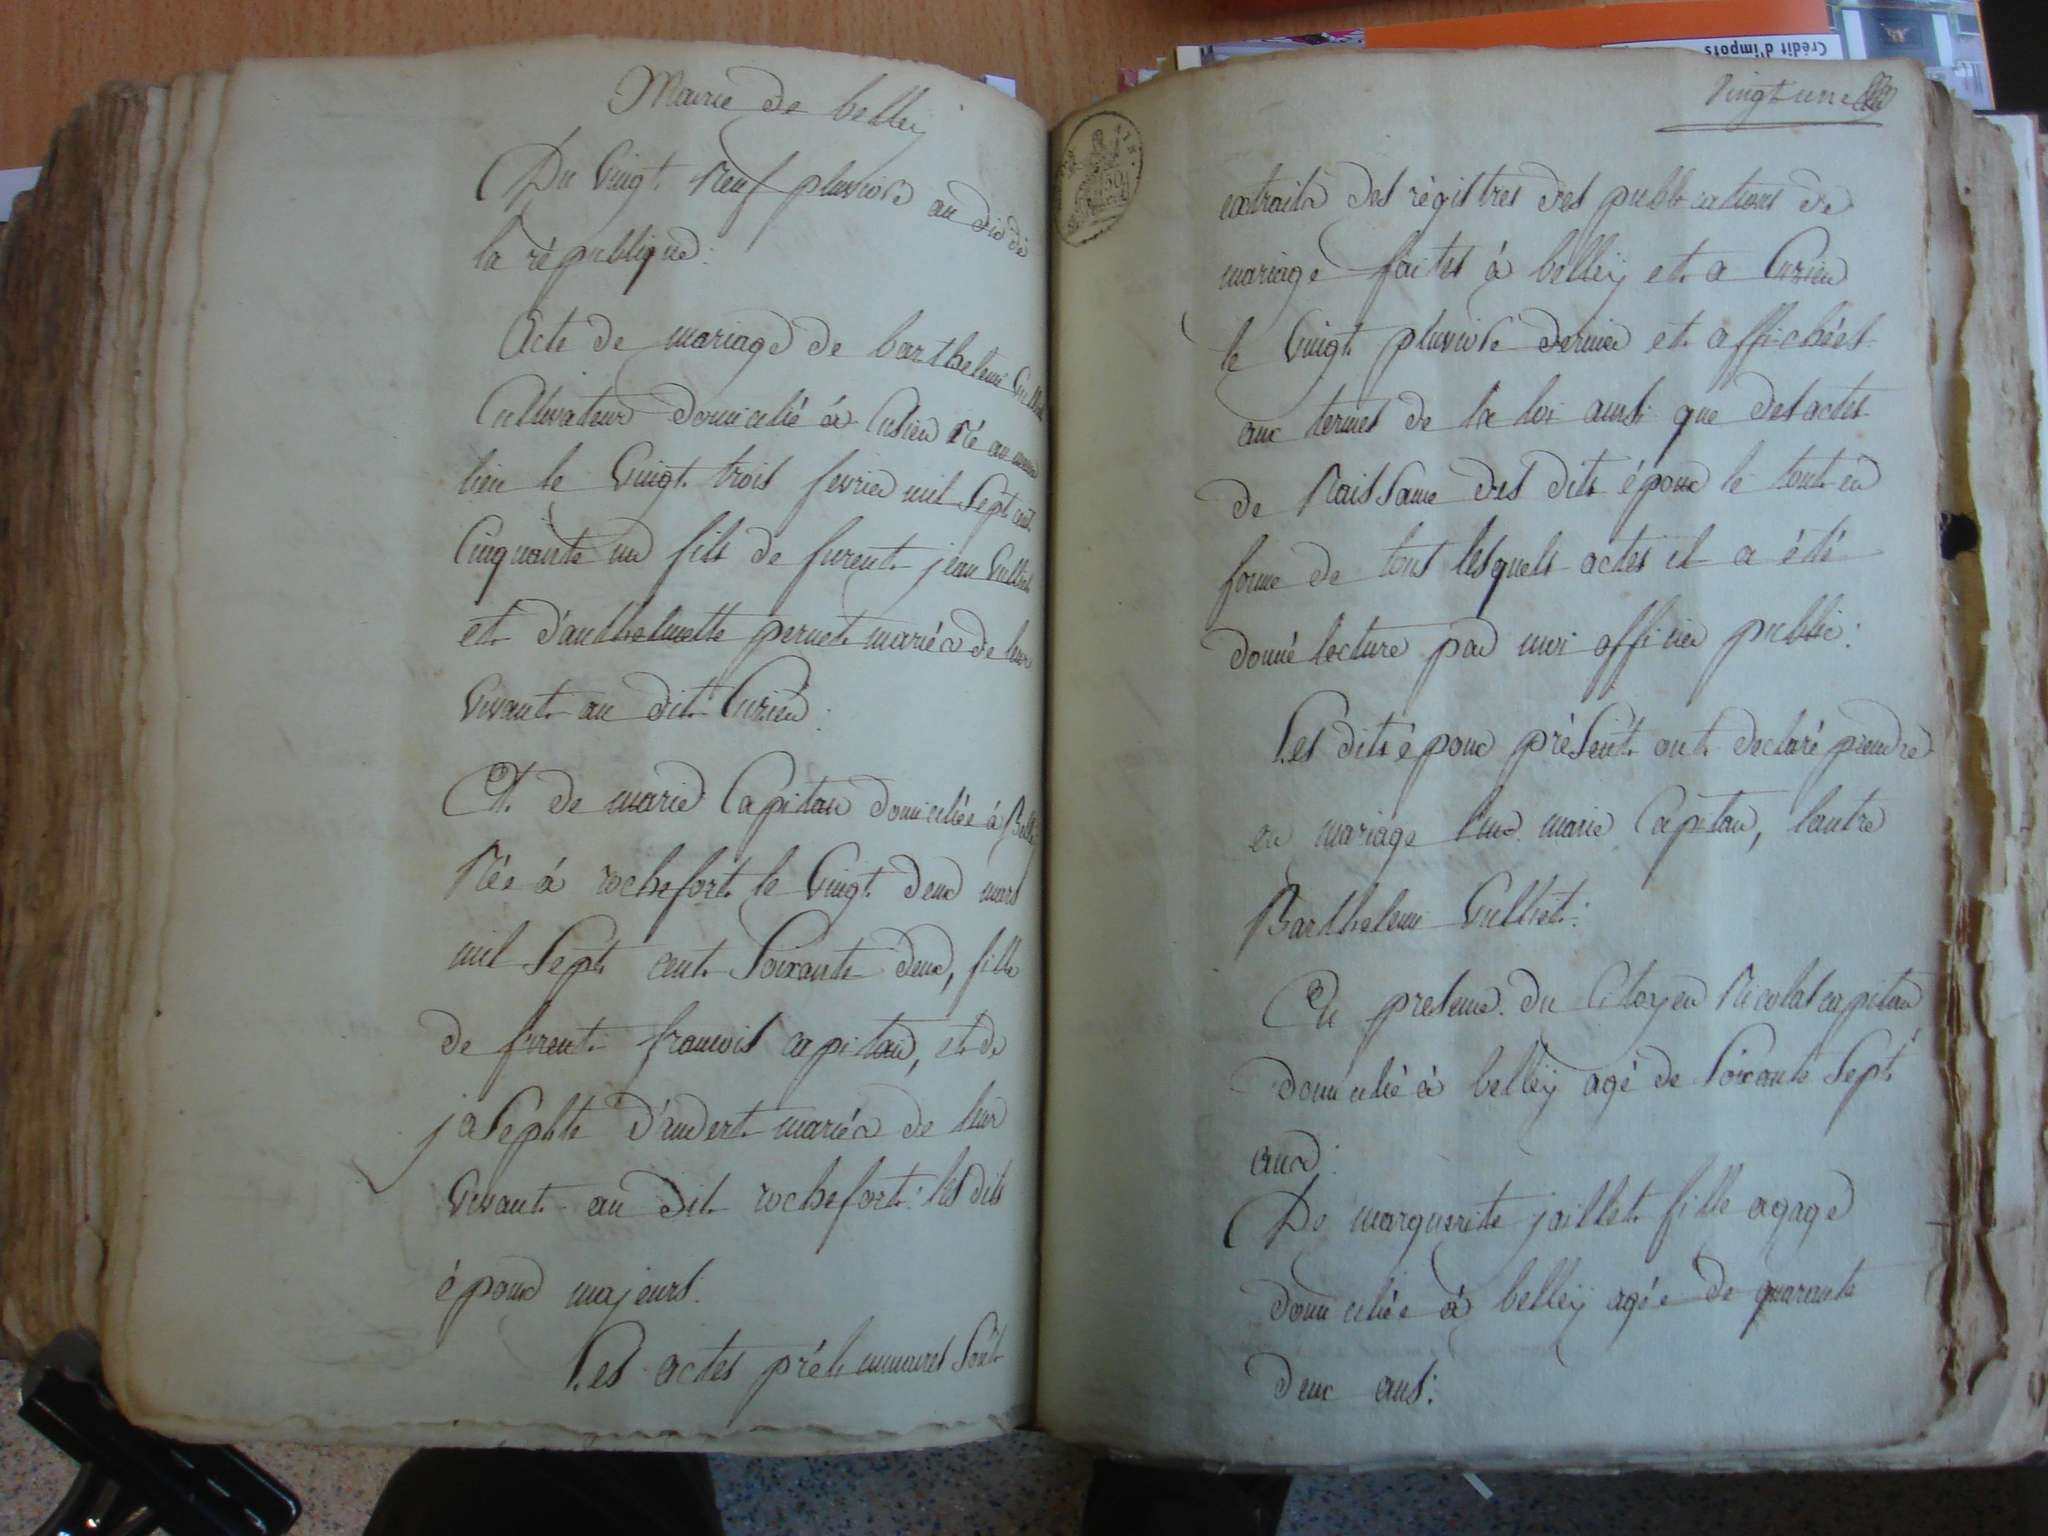 Mairie de belley
Du Vingt Neuf pluviose an dix de
la république:
Acte de mariage de barthelemi Gulliet
Cultivateur domicilié à Cusieu né au meme
lieu le Vingt trois fevrier mil Sept cent
Cinquante un fils de furent jean Gulliet
et d'anthelmette pernet mariés de leur
Vivant au dit Cuzieu:
Et de marie Capitan domiciliée à Belley
Née à rochefort le Vingt deux mars
mil Sept cent Soixante deux, fille
de furent francois capitan, et de
josephte mariés de leur
Vivant au dit rochefort: les dits
époux majeurs.
Les actes préliminaires Sont
Crédit d'impôts
Vingt une
extraits des régistres des publications de
mariage faites à belley et a Cuzieu
le Vingt pluviose dernier et affichées
aux termes de la loi ainsi que des actes
de Naissance des dits époux le tout en
forme de tous lesquels actes il a été
donné lecture par moi officier public:
Les dits époux présent ont declaré prendre
en mariage l'un marie Capitan, lautre
Barthelemi Gulliet:
En presence du Citoyen Nicolas capitan
domicilié à belley agé de Soixante Sept
ans:
De marguerite jaillet fille agage
domiciliée à belley agée de quarante
deux ans: